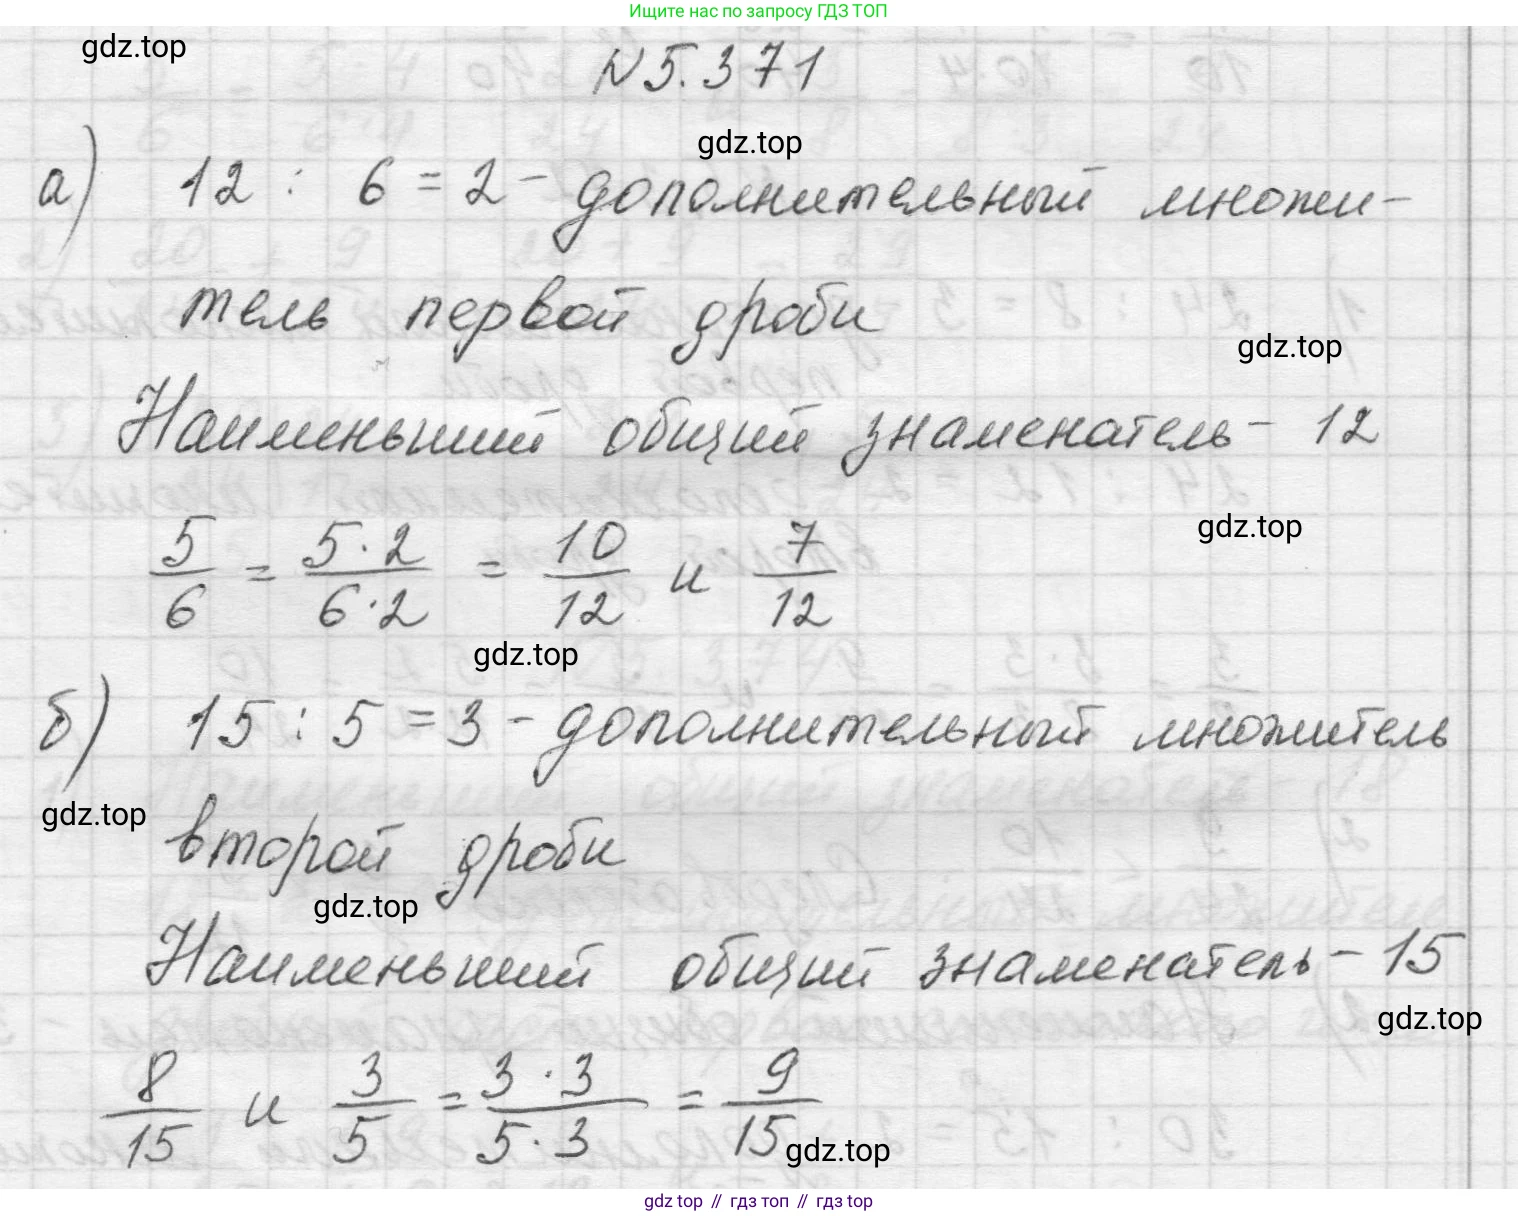 Ищите нас по запросу ГДЗ ТОП
gdz.top
N 5.371
gdz.top
а) 12 : 6 = 2 - дополнительный множи-
тель первой дроби
gdz.top
Наименьший общий знаменатель - 12
gdz.top
5/6 = 5·2/6·2 = 10/12 и 7/12
gdz.top
б) 15 : 5 = 3 - дополнительный множитель
gdz.top
второй дроби
gdz.top
Наименьший общий знаменатель - 15
gdz.top
8/15 и 3/5 = 3·3/5·3 = 9/15
gdz.top
gdz top // гдз топ // гдз top